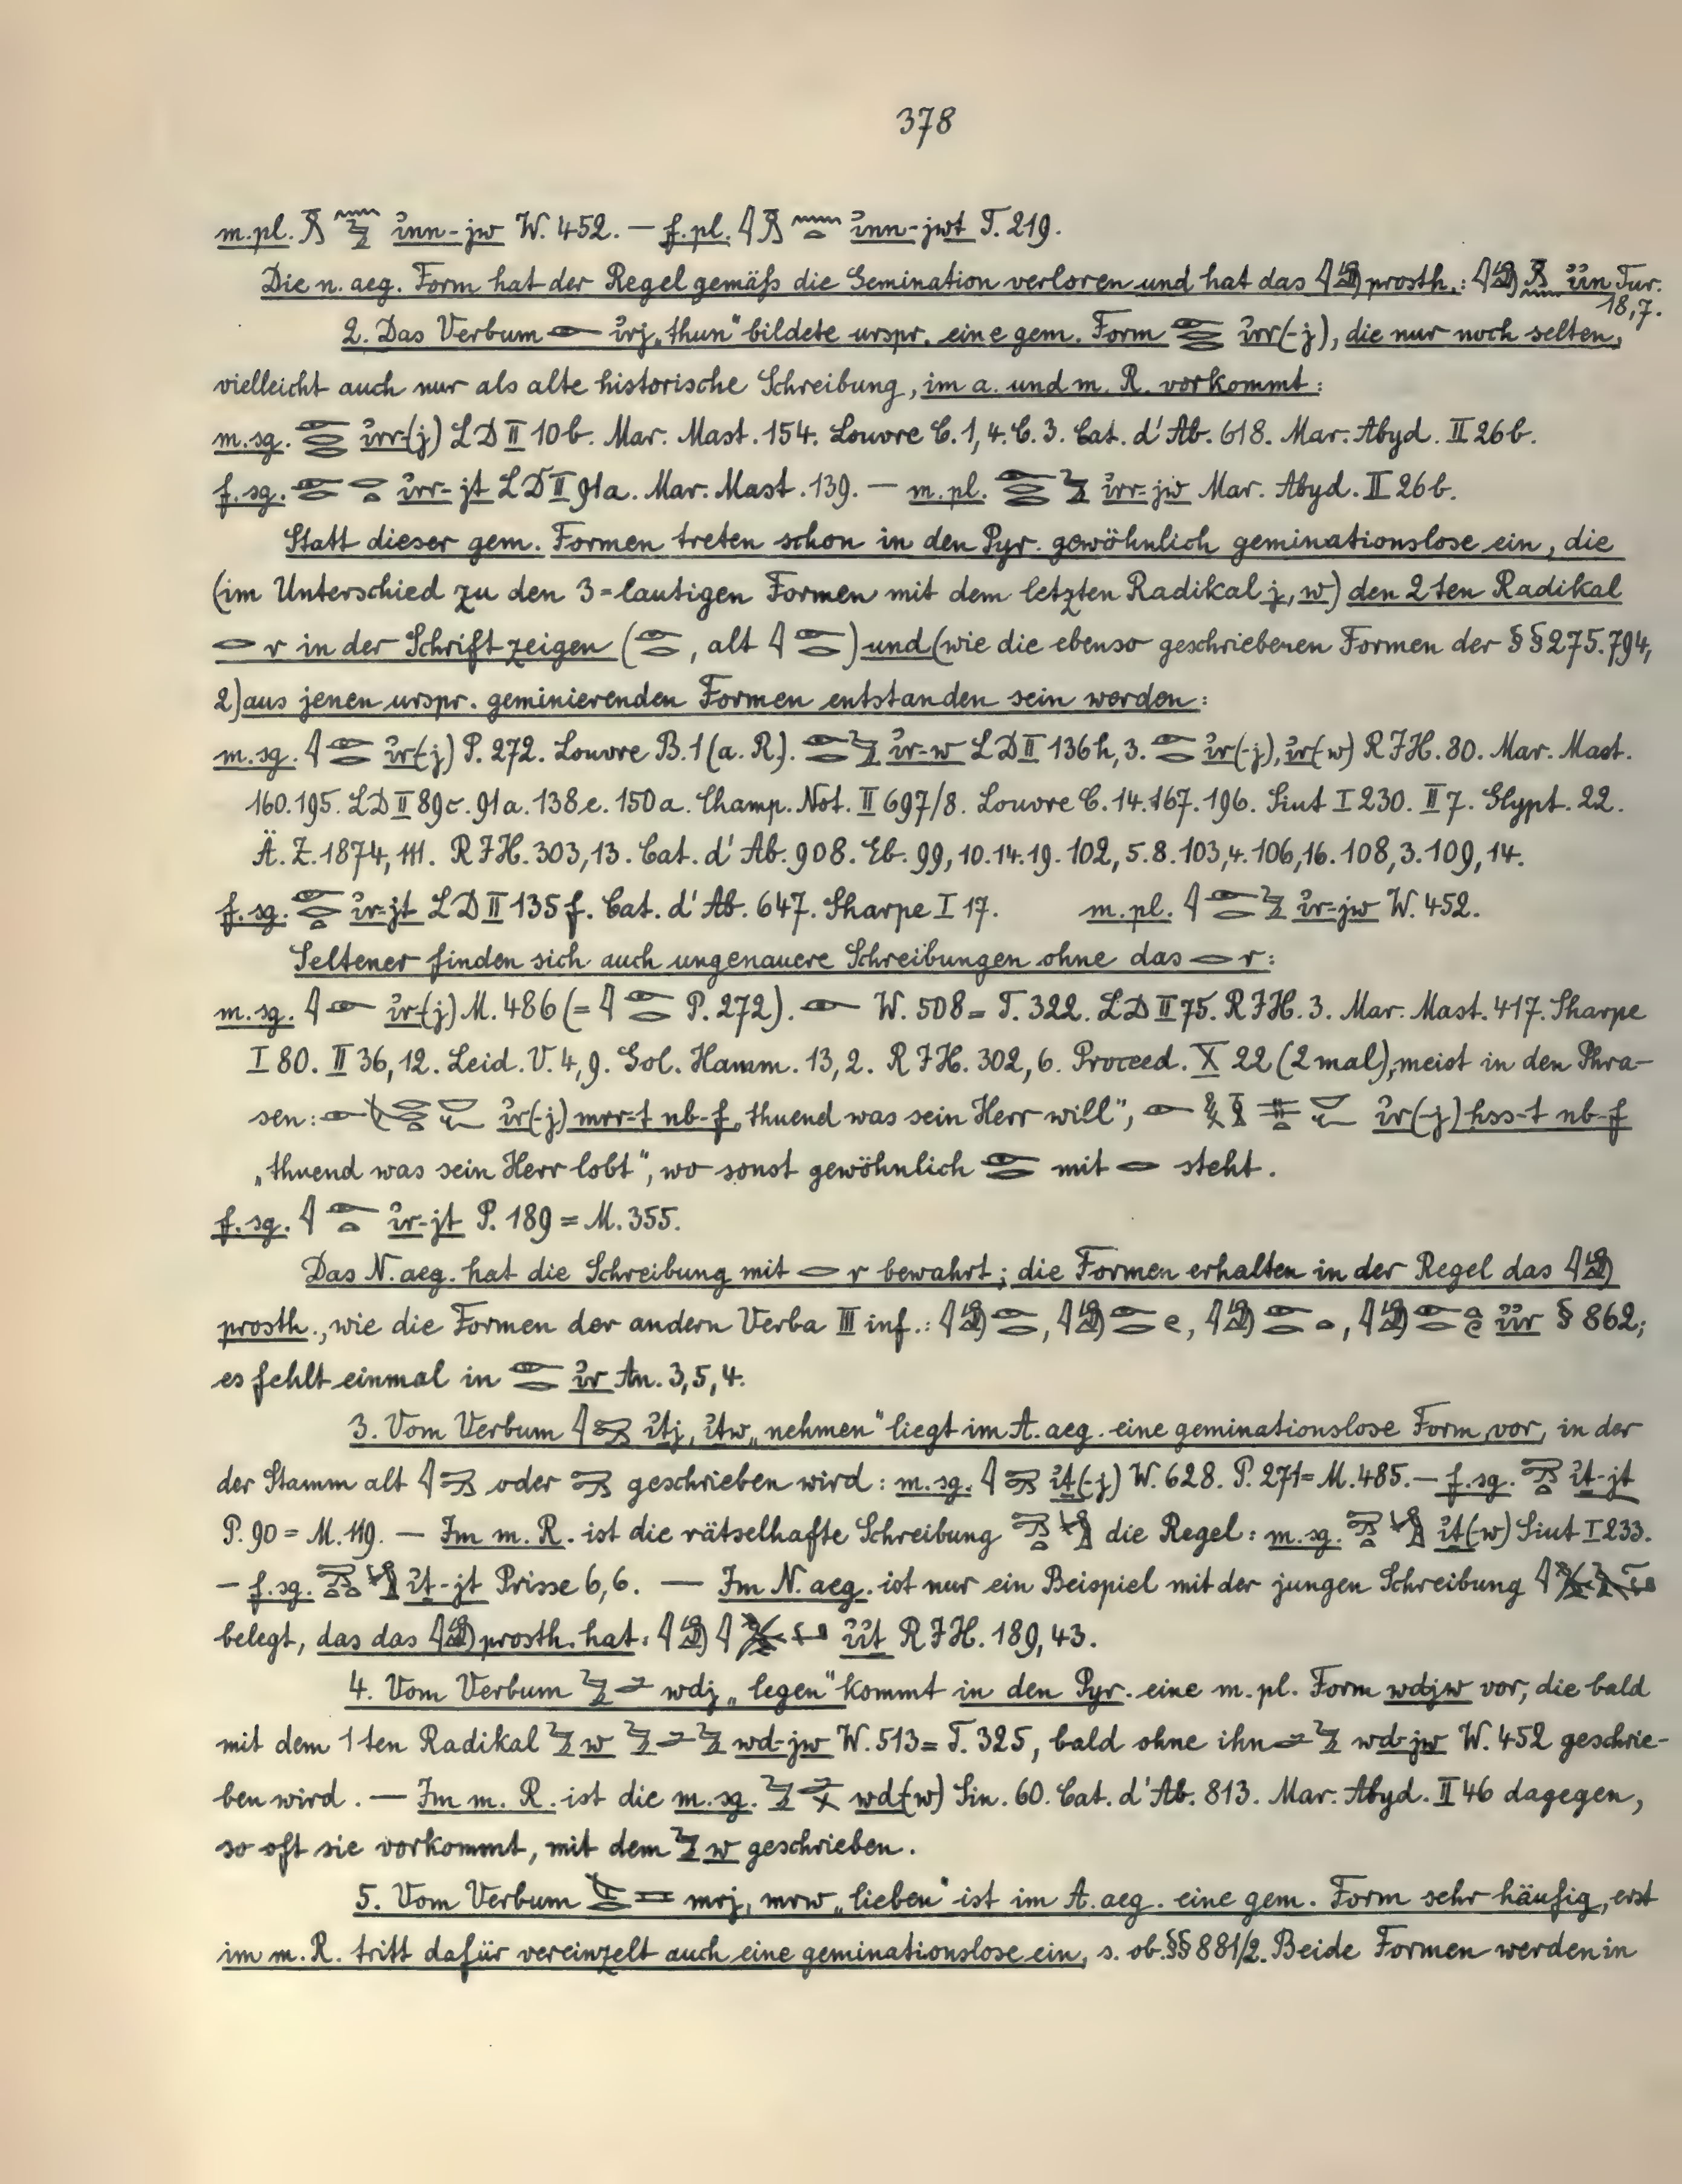 378
m.pl. 𓏎𓈖𓅱 ỉnn-jw W. 452. — f.pl. 𓇋𓏎𓈖𓏏 ỉnn-jwt T. 219.
Die n. aeg. Form hat der Regel gemäß die Gemination verloren und hat das 𓇋𓀁 prosth.: 𓇋𓀁𓏎𓈖 ỉỉn Tur. 18,7.
2. Das Verbum 𓁹 ỉrj „thun“ bildete urspr. eine gem. Form 𓁹𓂋𓂋 ỉrr(-j), die nur noch selten,
vielleicht auch nur als alte historische Schreibung, im a. und m. R. vorkommt:
m.sg. 𓁹𓂋𓂋 ỉrr-(j) LD II 10b. Mar. Mast. 154. Louvre C. 1,4. C. 3. Cat. d'Ab. 618. Mar. Abyd. II 26b.
f.sg. 𓁹𓂋𓂋𓏏 ỉrr-jt LD II 91a. Mar. Mast. 139. — m.pl. 𓁹𓂋𓂋𓅱 ỉrr-jw Mar. Abyd. II 26b.
Statt dieser gem. Formen treten schon in den Pyr. gewöhnlich geminationslose ein, die
(im Unterschied zu den 3=lautigen Formen mit dem letzten Radikal j, w) den 2ten Radikal
𓂋 r in der Schrift zeigen (𓁹𓂋, alt 𓇋𓁹𓂋) und (wie die ebenso geschriebenen Formen der §§ 275. 794,
2) aus jenen urspr. geminierenden Formen entstanden sein werden:
m.sg. 𓇋𓁹𓂋 ỉr(-j) P. 272. Louvre B. 1 (a. R.). 𓁹𓂋𓅱 ỉr-w LD II 136h, 3. 𓁹𓂋 ỉr(-j), ỉr(w) RJH. 80. Mar. Mast.
160. 195. LD II 89c. 91a. 138e. 150a. Champ. Not. II 697/8. Louvre C. 14. 167. 196. Siut I 230. II 7. Glypt. 22.
Ä. Z. 1874, 111. RJH. 303, 13. Cat. d'Ab. 908. Eb. 99, 10. 14. 19. 102, 5. 8. 103, 4. 106, 16. 108, 3. 109, 14.
f.sg. 𓁹𓂋𓏏 ỉr-jt LD II 135f. Cat. d'Ab. 647. Sharpe I 17. m.pl. 𓇋𓁹𓂋𓅱 ỉr-jw W. 452.
Seltener finden sich auch ungenauere Schreibungen ohne das 𓂋 r:
m.sg. 𓇋𓁹 ỉr-(j) M. 486 (= 𓇋𓁹𓂋 P. 272). 𓁹 W. 508 = T. 322. LD II 75. RJH. 3. Mar. Mast. 417. Sharpe
I 80. II 36, 12. Leid. V. 4, 9. Gol. Hamm. 13, 2. RJH. 302, 6. Proceed. X 22 (2 mal), meist in den Phra-
sen: 𓁹𓌸𓂋𓂋𓏏𓎟𓆑 ỉr(-j) mrr-t nb-f „thuend was sein Herr will“, 𓁹𓎛𓎿𓋴𓋴𓏏𓎟𓆑 ỉr(-j) hss-t nb-f
„thuend was sein Herr lobt“, wo sonst gewöhnlich 𓁹𓂋 mit 𓂋 steht.
f.sg. 𓇋𓁹𓏏 ỉr-jt P. 189 = M. 355.
Das N. aeg. hat die Schreibung mit 𓂋 r bewahrt; die Formen erhalten in der Regel das 𓇋𓀁
prosth., wie die Formen der andern Verba III inf.: 𓇋𓀁𓁹𓂋, 𓇋𓀁𓁹𓂋𓏲, 𓇋𓀁𓁹𓂋𓏏, 𓇋𓀁𓁹𓂋𓏏𓏲 ỉỉr § 862;
es fehlt einmal in 𓁹𓂋 ỉr An. 3, 5, 4.
3. Vom Verbum 𓇋𓍿 ỉṯj, ỉṯw „nehmen“ liegt im A. aeg. eine geminationslose Form vor, in der
der Stamm alt 𓇋𓍿 oder 𓍿 geschrieben wird: m.sg. 𓇋𓍿 ỉṯ(-j) W. 628. P. 271 = M. 485. — f.sg. 𓍿𓏏 ỉṯ-jt
P. 90 = M. 119. — Im m. R. ist die rätselhafte Schreibung 𓍿𓏏𓀜 die Regel: m.sg. 𓍿𓏏𓀜 ỉṯ(-w) Siut I 233.
— f.sg. 𓍿𓏏𓏏𓀜 ỉṯ-jt Prisse 6, 6. — Im N. aeg. ist nur ein Beispiel mit der jungen Schreibung
belegt, das das 𓇋𓀁 prosth. hat: ỉỉṯ RJH. 189, 43.
4. Vom Verbum 𓅱𓂧 wdj „legen“ kommt in den Pyr. eine m. pl. Form wdjw vor, die bald
mit dem 1ten Radikal 𓅱 w 𓅱𓂧𓅱 wd-jw W. 513 = T. 325, bald ohne ihn 𓂧𓅱 wd-jw W. 452 geschrie-
ben wird. — Im m. R. ist die m.sg. 𓅱𓂧𓏴 wd(-w) Sin. 60. Cat. d'Ab. 813. Mar. Abyd. II 46 dagegen,
so oft sie vorkommt, mit dem 𓅱 w geschrieben.
5. Vom Verbum 𓌸𓂋𓇋 mrj, mrw „lieben“ ist im A. aeg. eine gem. Form sehr häufig, erst
im m. R. tritt dafür vereinzelt auch eine geminationslose ein, s. ob. §§ 881/2. Beide Formen werden in